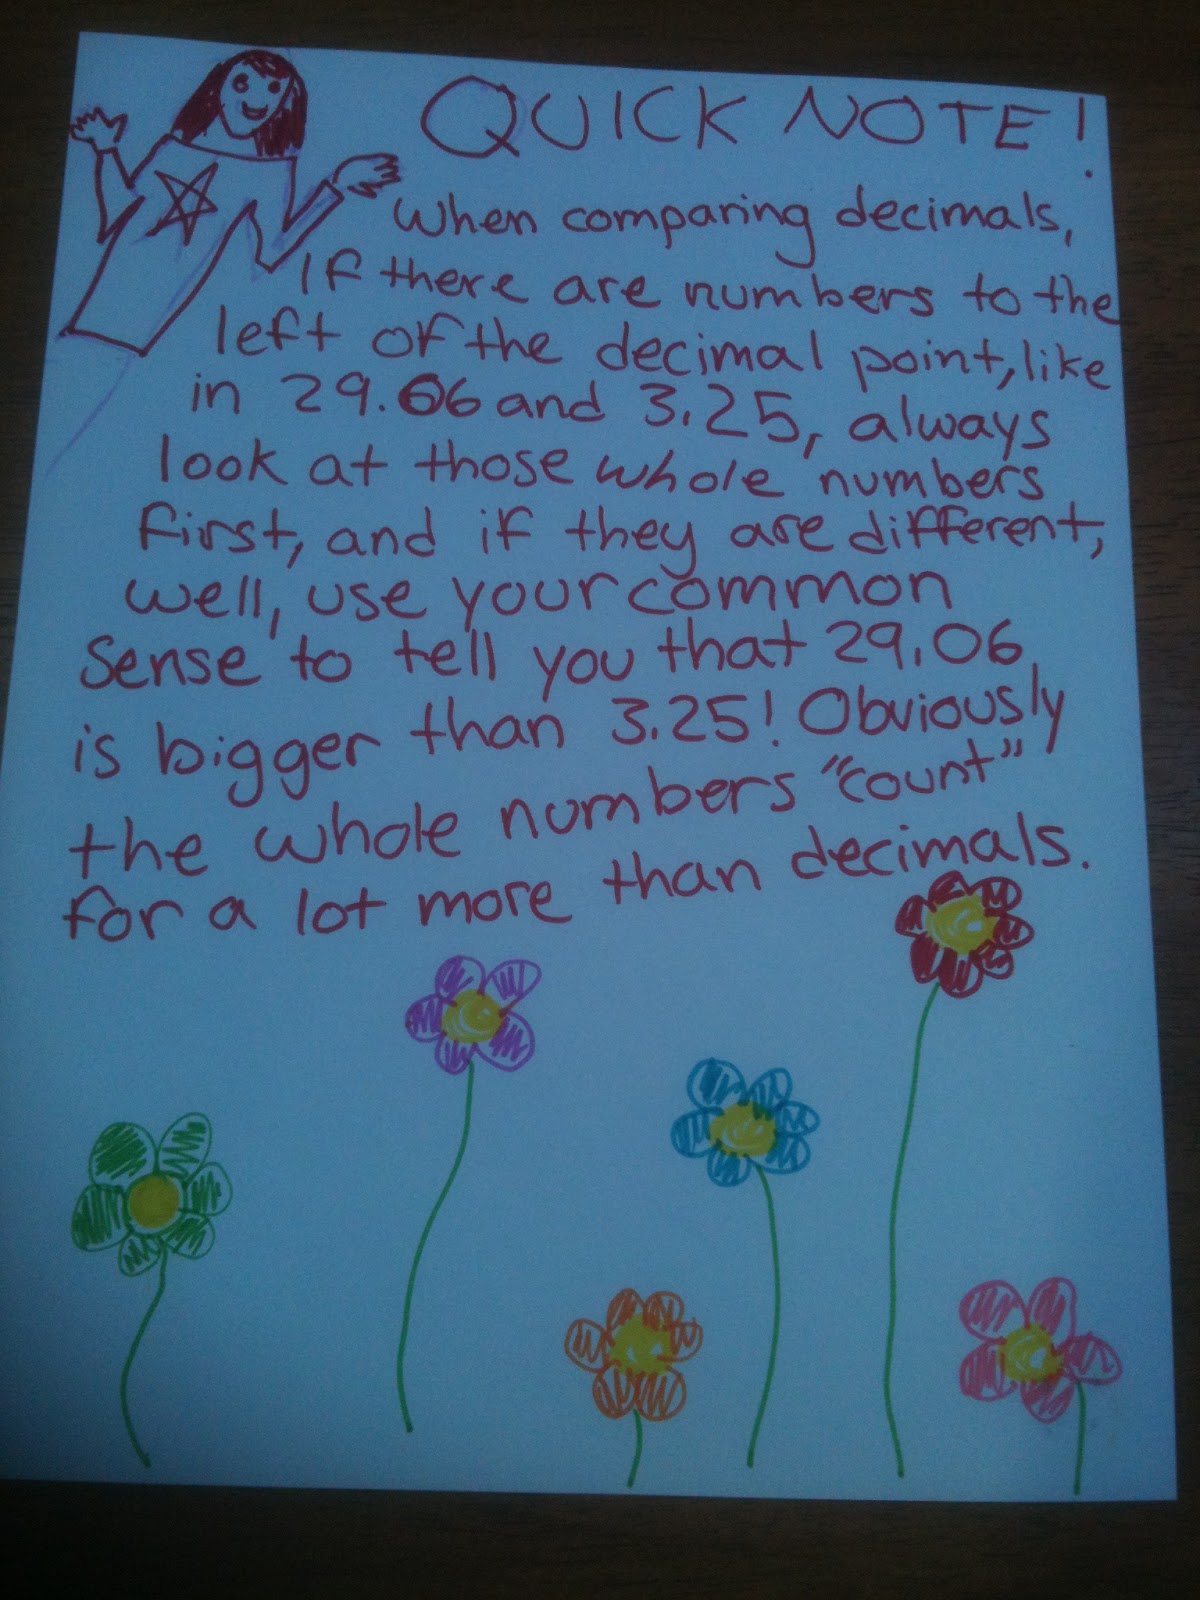 QUICK NOTE!
When comparing decimals,
If there are numbers to the
left of the decimal point, like
in 29.06 and 3.25, always
look at those whole numbers
first, and if they are different,
well, use your common
sense to tell you that 29.06
is bigger than 3.25! Obviously
the whole numbers "count"
for a lot more than decimals.